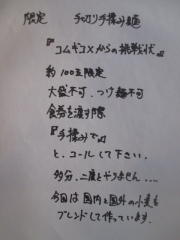 限定 手切り手揉み麺
『コムギコXからの挑戦状』
約100玉限定
大盛不可、つけ麺不可
食券を渡す際
『手揉みで』
と、コールして下さい。
多分、二度とやりません....
今回は国内と国外の小麦を
ブレンドして作っています。